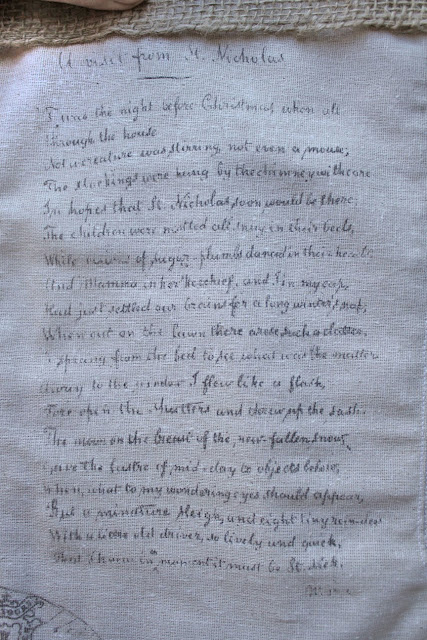 A visit from St. Nicholas
'Twas the night before Christmas, when all
through the house
Not a creature was stirring, not even a mouse;
The stockings were hung by the chimney with care
In hopes that St. Nicholas, soon would be there;
The children were nestled all snug in their beds,
While visions of sugar-plumbs danced in their heads;
And Mamma in her 'kerchief, and I in my cap,
Had just settled our brains for a long winter's nap,
When out on the lawn there arose such a clatter,
I sprang from the bed to see what was the matter
Away to the window I flew like a flash,
Tore open the shutters and threw up the sash.
The moon on the breast of the, new-fallen snow,
Gave the lustre of, mid-day to objects below,
When, what to my wondering eyes should appear,
But a miniature sleigh, and eight tiny rein-deer
With a little old driver, so lively and quick,
in moment it must be St. Nick.